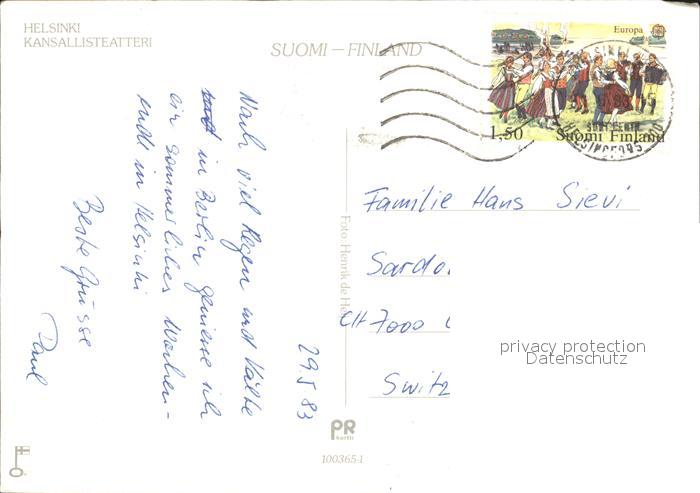 HELSINKI
KANSALLISTEATTERI
SUOMI – FINLAND
Europa
1,50 Suomi Finland
HELSINGFORS
29.5 83
Nach viel Regen und Kälte
in Berlin geniesse ich
ein sommerliches Wochen-
ende in Helsinki
Beste Grüsse
Paul
Foto Henrik de He
Familie Hans Sievi
Sardo
CH 7000
Switz
privacy protection
Datenschutz
PR
kortti
100365-1